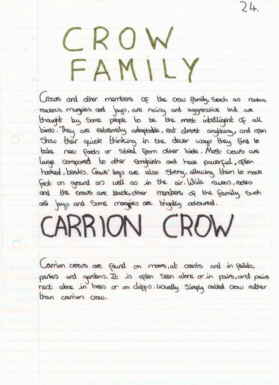 24.
CROW
FAMILY
Crows and other members of the crow family, such as
magpies and jays, are noisy and aggressive but are
thought by some people to be the most intelligent of all
birds. They are extremely adaptable, eat almost anything, and often
show their quick thinking in the clever ways they find to
take new foods or steal from other birds. Most crows are
large compared to other songbirds and have powerful, often
hooked, beaks. Crows' legs are also strong, allowing them to move
fast on ground as well as in the air. While ravens, rooks
and the crows are black, other members of the family such
as jays and some magpies are brightly coloured.
CARRION CROW
Carrion crows are found on moors, at coasts and in fields,
parks and gardens. It is often seen alone or in pairs, and pairs
nest alone in trees or on cliffs. Usually simply called crow rather
than carrion crow.